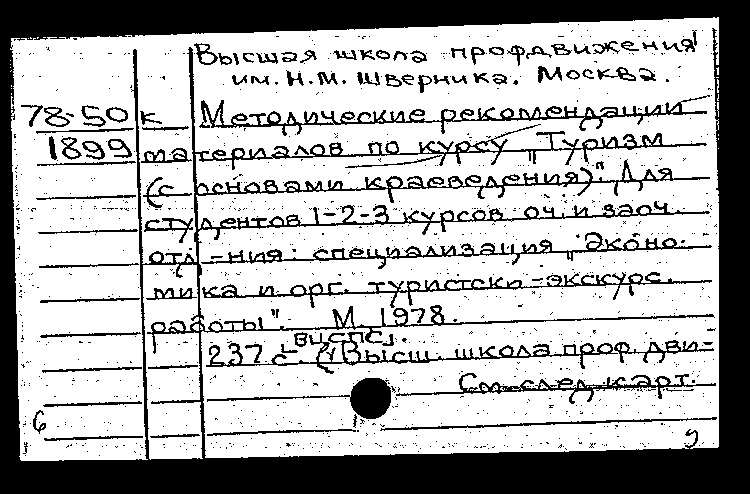 Высшая школа профдвижения
им. Н.М. Шверника. Москва.
78-50 к Методические рекомендации
1899 материалов по курсу „Туризм
(с основами краеведения)". Для
студентов 1-2-3 курсов оч. и заоч.
отд-ния: специализация „Эконо-
мика и орг. туристско-экскурс.
работы". М. 1978.
ВЦСПС.
237 с. (Высш. школа проф. дви-
См. след. карт.
6
9